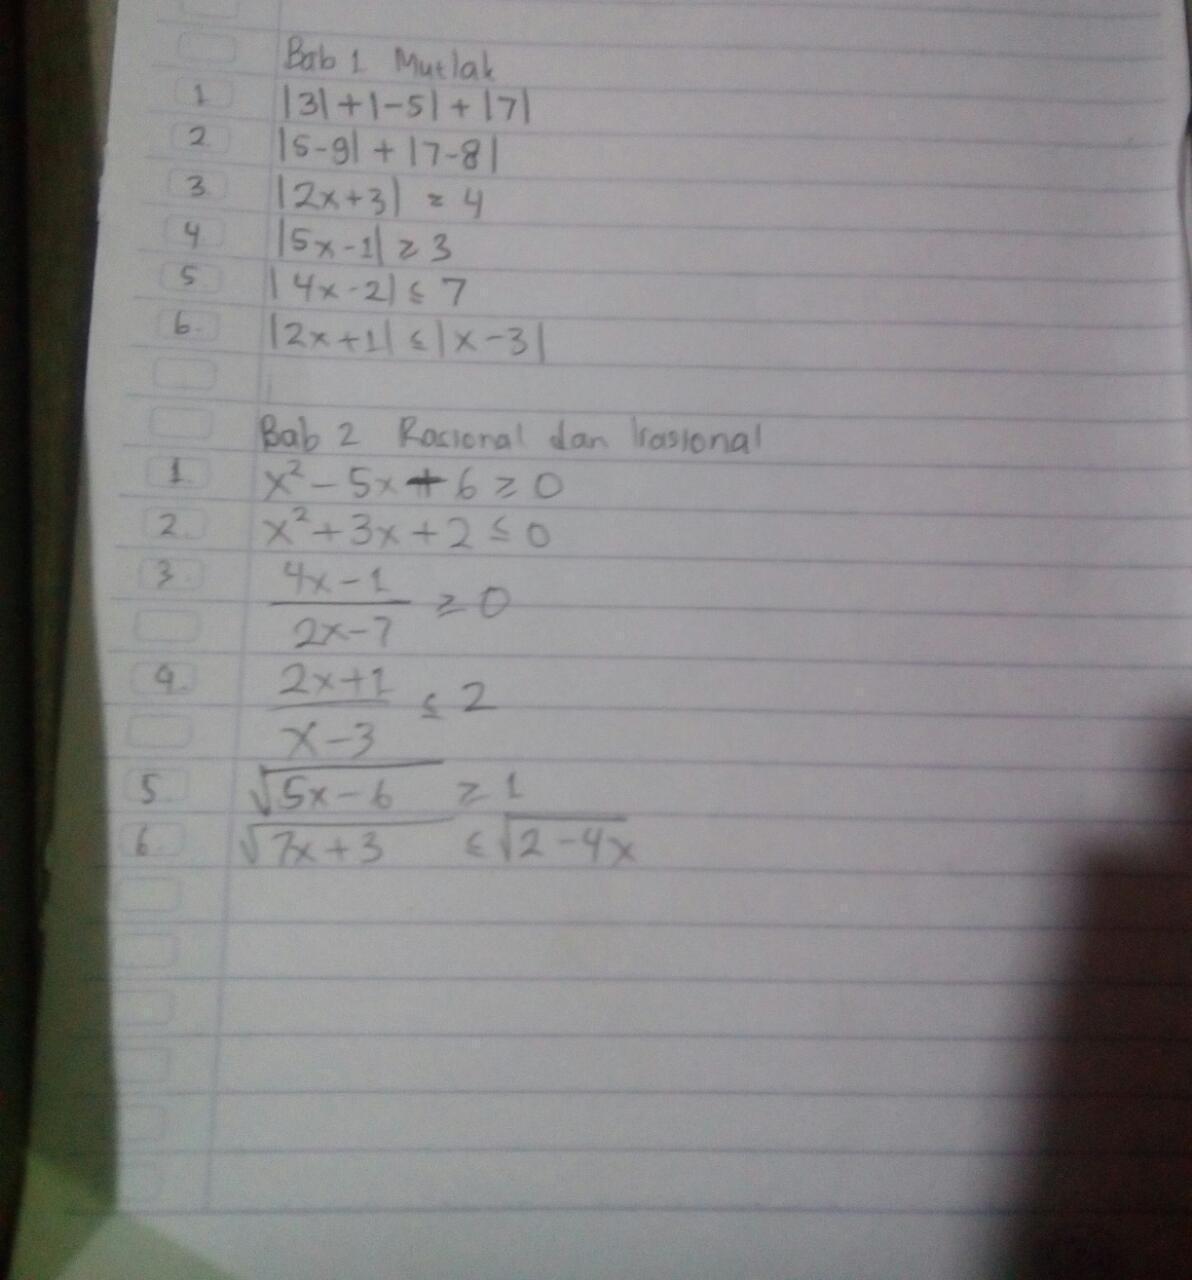 Bab 1 Mutlak
1 |3|+|-5|+|7|
2 |5-9|+|7-8|
3 |2x+3| = 4
4 |5x-1| ≥ 3
5 |4x-2| ≤ 7
6. |2x+1| ≤ |x-3|
Bab 2 Rasional dan Irasional
1. x²-5x+6 ≥ 0
2. x²+3x+2 ≤ 0
3. (4x-1)/(2x-7) ≥ 0
4. (2x+1)/(x-3) ≤ 2
5 √(5x-6) ≥ 1
6. √(7x+3) ≤ √(2-4x)